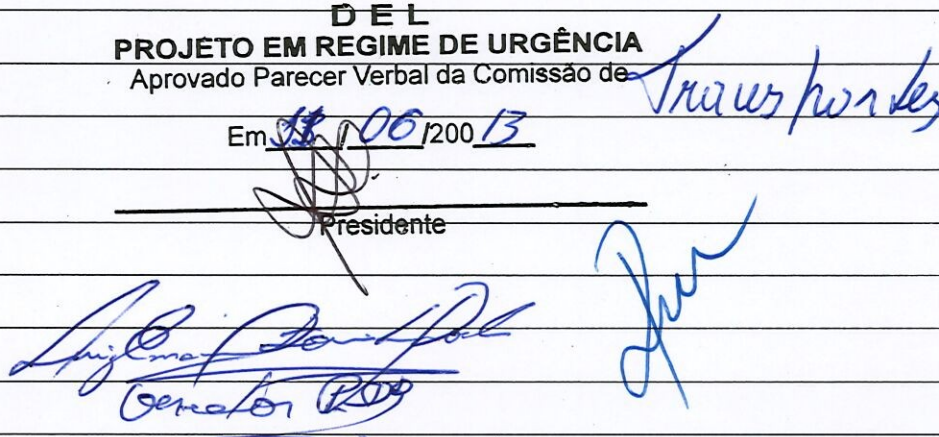 D E L
PROJETO EM REGIME DE URGÊNCIA
Aprovado Parecer Verbal da Comissão de Transportes
Em / 06 /200 13
Presidente
Vereador